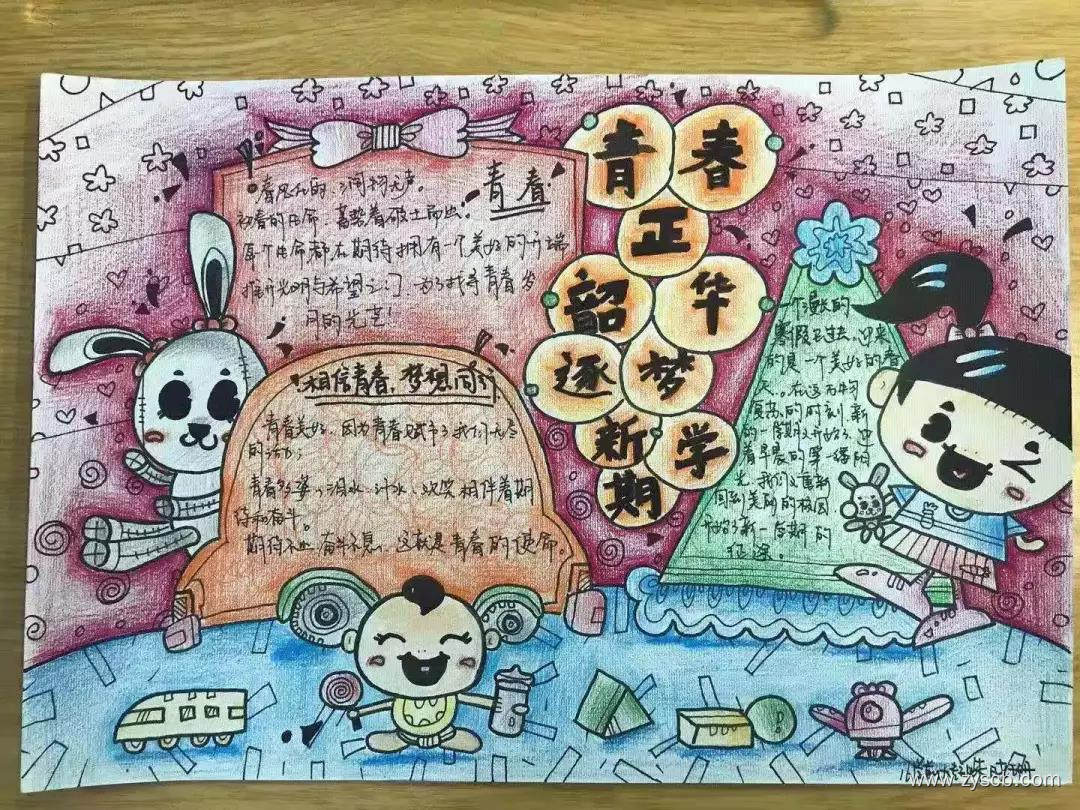 青春
正
韶华
逐梦
新学
期
青春
春风化雨，润物无声。
初春的生命，蓄势着破土而出。
每个生命都在期待拥有一个美好的开端
推开光明与希望之门，为了找寻青春岁
月的光芒！
相信青春，梦想同行
青春美好，因为青春赋予了我们无尽
的活力；
青春多姿，泪水、汗水、欢笑相伴着期
待和奋斗。
期待不止，奋斗不息，这就是青春的使命。
一个漫长的
寒假已过去，迎来
的是一个美好的春
天。在这万物
复苏的时刻，新
的一学期又开始了，
着早晨的第一缕阳
光，我们又重新
回到美丽的校园
开始了新一学期的
征途。
www.zyscb.com